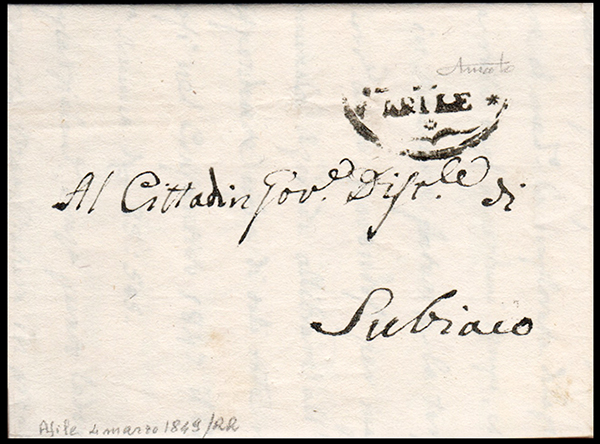 AFILE *
Al Cittadin Gov.e Dist.le di
Subiaco
Afile 4 marzo 1849/RR